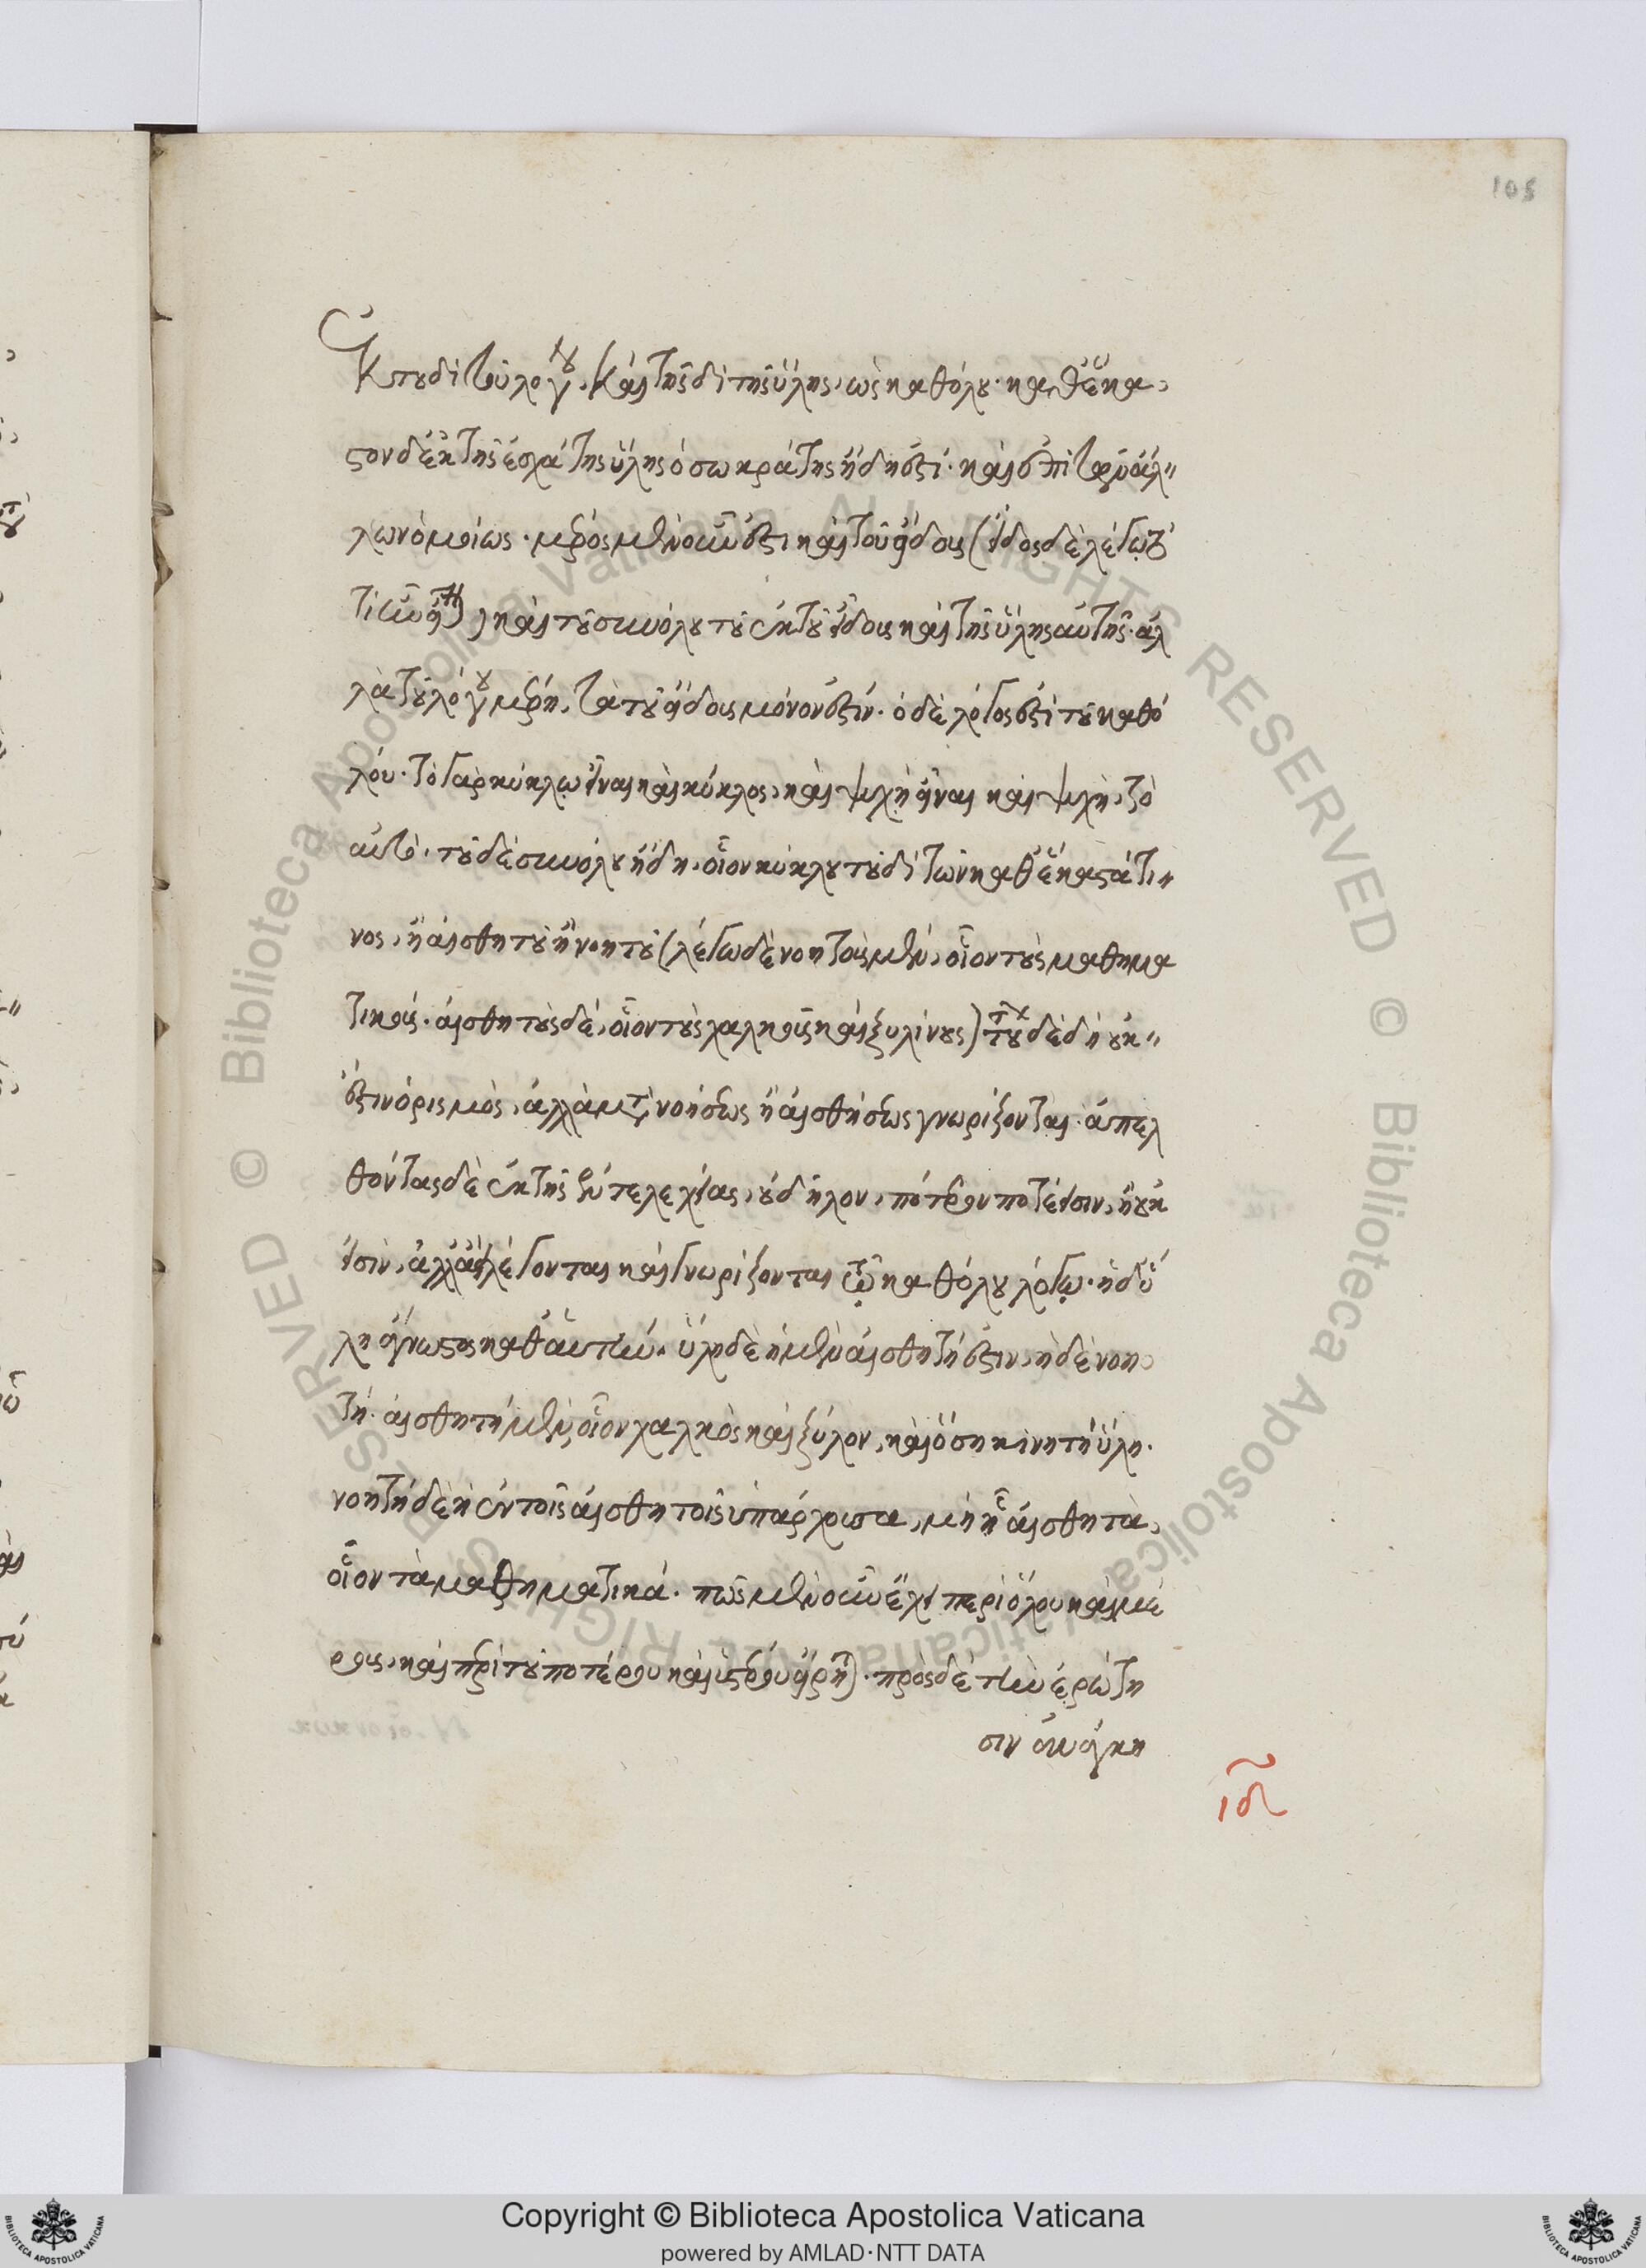 105
Ἐκ τουδὶ τοῦ λόγου, καὶ τῆς δὶ τῆς ὕλης, ὡς καθόλου· καθ' ἕκα-
στον δ' ἐκ τῆς ἐσχάτης ὕλης ὁ σωκράτης ἤδη ἐστί· καὶ ἐπὶ τῶν ἄλ-
λων ὁμοίως. μέρος μὲν οὖν ἐστι καὶ τοῦ εἴδους (εἶδος δὲ λέγω τὸ
τί ἦν εἶναι) καὶ τοῦ συνόλου τοῦ ἐκ τοῦ εἴδους καὶ τῆς ὕλης αὐτῆς· ἀλ
λὰ τοῦ λόγου μέρη, τὰ τοῦ εἴδους μόνον ἐστίν. ὁ δὲ λόγος ἐστὶ τοῦ καθό
λου. τὸ γὰρ κύκλῳ εἶναι καὶ κύκλος, καὶ ψυχῇ εἶναι καὶ ψυχὴ, τὸ
αὐτό. τοῦ δὲ συνόλου ἤδη, οἷον κύκλου τουδὶ τῶν καθ' ἕκαστά τι-
νος, ἢ αἰσθητοῦ ἢ νοητοῦ (λέγω δὲ νοητοὺς μὲν, οἷον τοὺς μαθημα
τικούς. αἰσθητοὺς δὲ, οἷον τοὺς χαλκοῦς καὶ ξυλίνους) τούτου δὲ δὴ οὐκ
ἔστιν ὁρισμὸς, ἀλλὰ μετὰ νοήσεως ἢ αἰσθήσεως γνωρίζονται. ἀπελ
θόντας δὲ ἐκ τῆς ἐντελεχείας, οὐ δῆλον, πότερον ποτέ εἰσιν, ἢ οὐκ
εἰσίν, ἀλλ' ἀεὶ λέγονται καὶ γνωρίζονται τῷ καθόλου λόγῳ. ἡ δ' ὕ
λη ἄγνωστος καθ' αὑτήν. ὕλη δὲ ἡ μὲν αἰσθητή ἐστιν, ἡ δὲ νοη-
τή. αἰσθητὴ μὲν, οἷον χαλκὸς καὶ ξύλον, καὶ ὅση κινητὴ ὕλη.
νοητὴ δὲ ἡ ἐν τοῖς αἰσθητοῖς ὑπάρχουσα, μὴ ᾗ αἰσθητὰ,
οἷον τὰ μαθηματικά. πῶς μὲν οὖν ἔχει περὶ ὅλου καὶ μέ
ρους, καὶ περὶ τοῦ προτέρου καὶ ὑστέρου εἴρηται. πρὸς δὲ τὴν ἐρώτη
σιν ἀνάγκη
ιδ
Copyright © Biblioteca Apostolica Vaticana
powered by AMLAD·NTT DATA